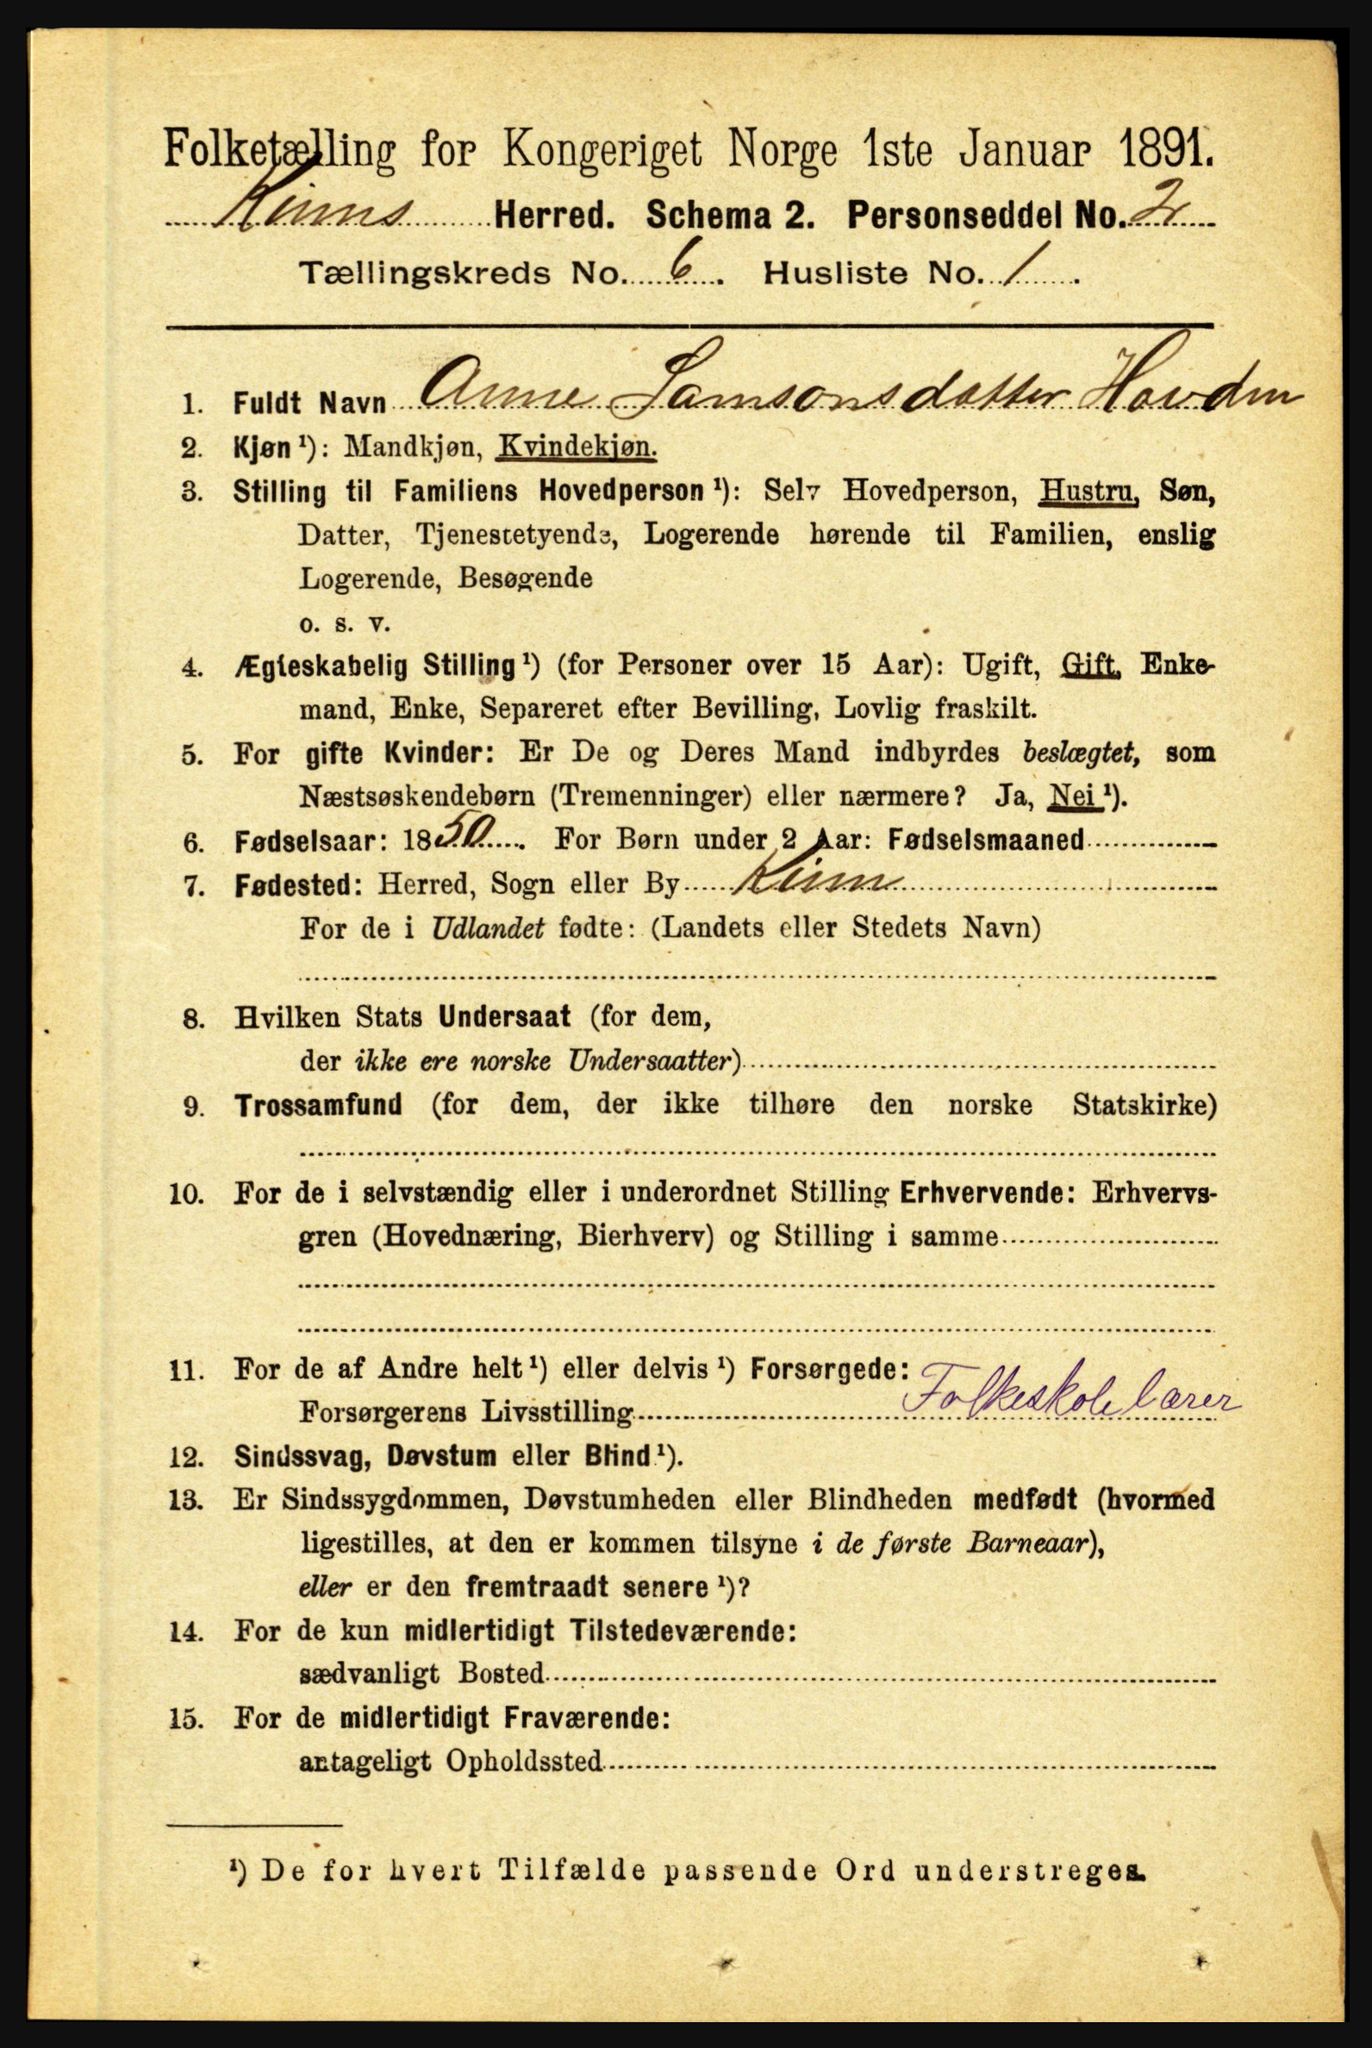 Folketælling for Kongeriget Norge 1ste Januar 1891.
Kinns Herred. Schema 2. Personseddel No. 2
Tællingskreds No. 6. Husliste No. 1.
1. Fuldt Navn Anne Samsonsdatter Hovden
2. Kjøn ¹): Mandkjøn, Kvindekjøn.
3. Stilling til Familiens Hovedperson ¹): Selv Hovedperson, Hustru, Søn,
Datter, Tjenestetyende, Logerende hørende til Familien, enslig
Logerende, Besøgende
o. s. v.
4. Ægteskabelig Stilling ¹) (for Personer over 15 Aar): Ugift, Gift, Enke-
mand, Enke, Separeret efter Bevilling, Lovlig fraskilt.
5. For gifte Kvinder: Er De og Deres Mand indbyrdes beslægtet, som
Næstsøskendebørn (Tremenninger) eller nærmere? Ja, Nei ¹).
6. Fødselsaar: 1850. For Børn under 2 Aar: Fødselsmaaned
7. Fødested: Herred, Sogn eller By Kinn
For de i Udlandet fødte: (Landets eller Stedets Navn)
8. Hvilken Stats Undersaat (for dem,
der ikke ere norske Undersaatter)
9. Trossamfund (for dem, der ikke tilhøre den norske Statskirke)
10. For de i selvstændig eller i underordnet Stilling Erhvervende: Erhvervs-
gren (Hovednæring, Bierhverv) og Stilling i samme
11. For de af Andre helt ¹) eller delvis ¹) Forsørgede:
Forsørgerens Livsstilling Folkeskolelærer
12. Sindssvag, Døvstum eller Blind ¹).
13. Er Sindssygdommen, Døvstumheden eller Blindheden medfødt (hvormed
ligestilles, at den er kommen tilsyne i de første Barneaar),
eller er den fremtraadt senere ¹)?
14. For de kun midlertidigt Tilstedeværende:
sædvanligt Bosted
15. For de midlertidigt Fraværende:
antageligt Opholdssted
¹) De for hvert Tilfælde passende Ord understreges.